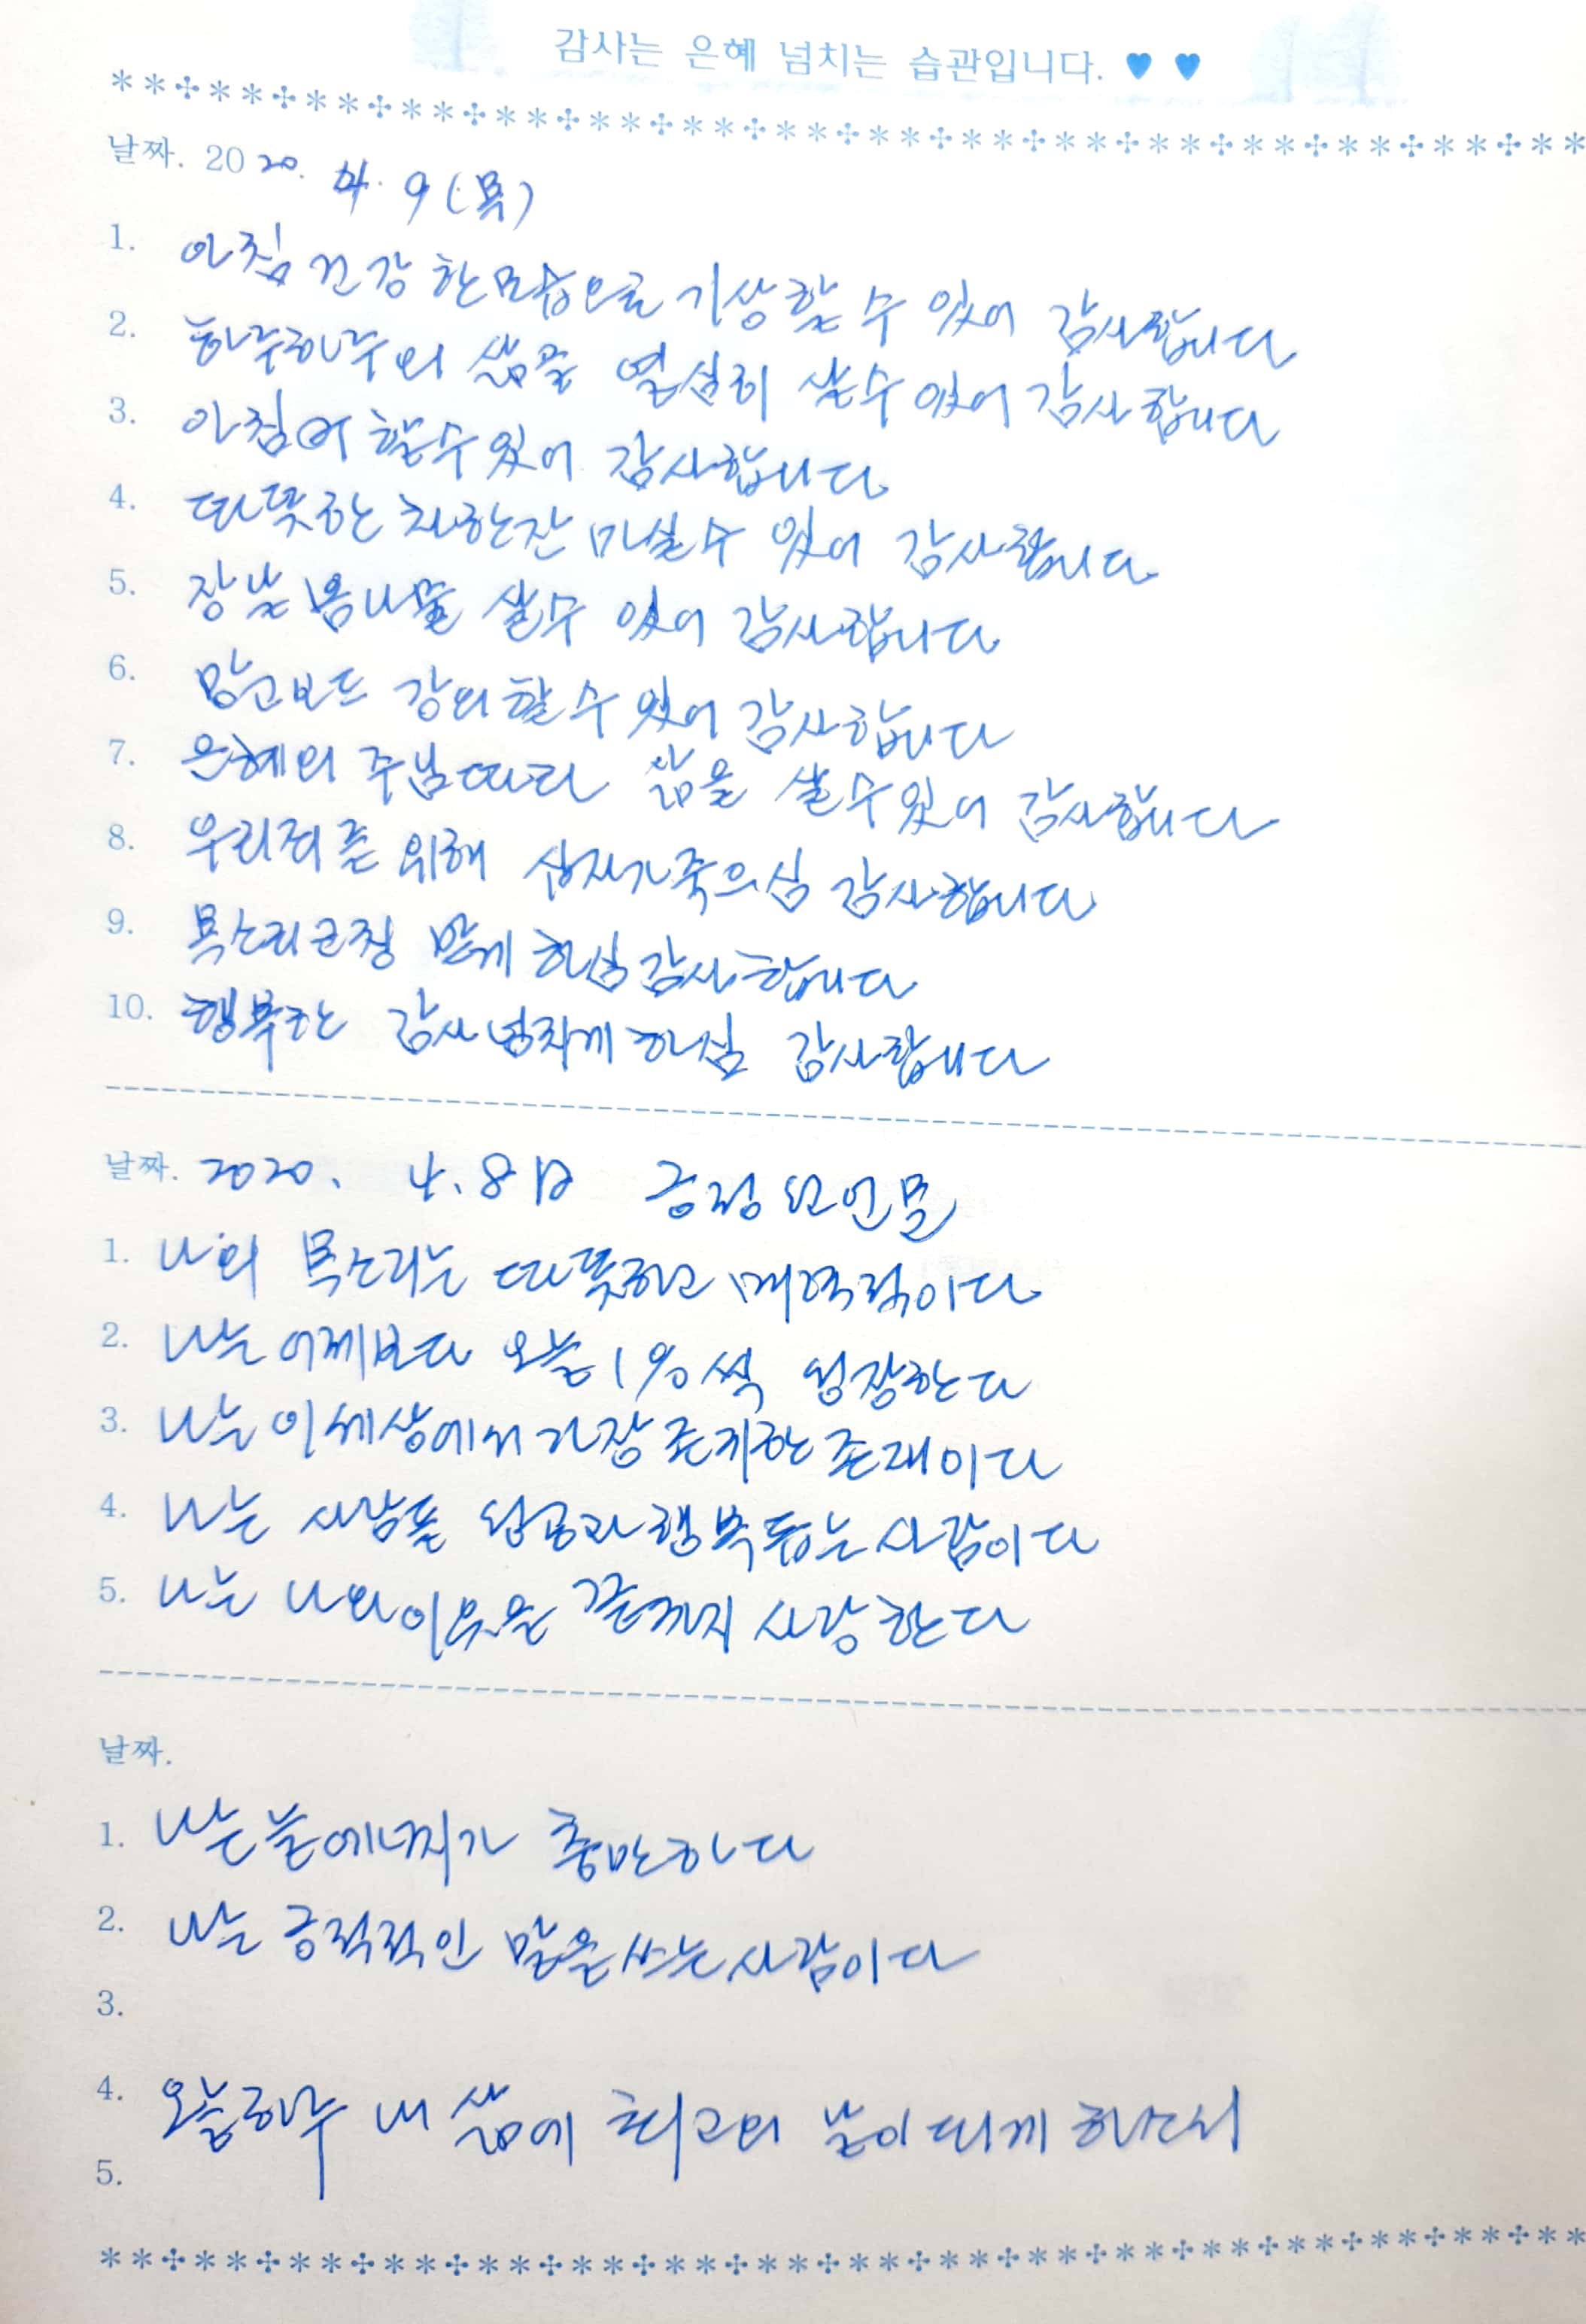 감사는 은혜 넘치는 습관입니다. ♥ ♥
날짜. 2020. 4. 9 (목)
1. 아침 건강한모습으로 기상할 수 있어 감사합니다
2. 하루하루의 삶을 열심히 살수 있어 감사합니다
3. 아침 할수 있어 감사합니다
4. 따뜻한 차한잔 마실수 있어 감사합니다
5. 장날 봄나물 살수 있어 감사합니다
6. 망고보드 강의할 수 있어 감사합니다
7. 은혜의 주님따라 삶을 살수있어 감사합니다
8. 우리죄를 위해 십자가 죽으심 감사합니다
9. 목소리코칭 받게 하심 감사합니다
10. 행복한 감사넘치게 하심 감사합니다
날짜. 2020. 4. 8일 긍정 선언문
1. 나의 목소리는 따뜻하고 매력적이다
2. 나는 어제보다 오늘 1%씩 성장한다
3. 나는 이세상에서 가장 존귀한 존재이다
4. 나는 사람들 성공과 행복 돕는 사람이다
5. 나는 나와 이웃을 끝까지 사랑한다
날짜.
1. 나는 늘 에너지가 충만하다
2. 나는 긍정적인 말을 쓰는 사람이다
3.
4. 오늘하루 내 삶에 최고의 날이 되게 하소서
5.